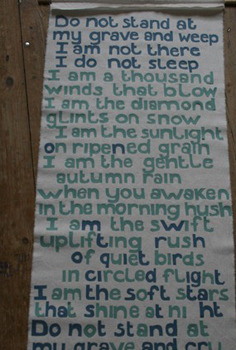 Do not stand at
my grave and weep
I am not there
I do not sleep
I am a thousand
winds that blow
I am the diamond
glints on snow
I am the sunlight
on ripened grain
I am the gentle
autumn rain
when you awaken
in the morning hush
I am the swift
uplifting rush
of quiet birds
in circled flight
I am the soft stars
that shine at ni ht
Do not stand at
my grave and cry